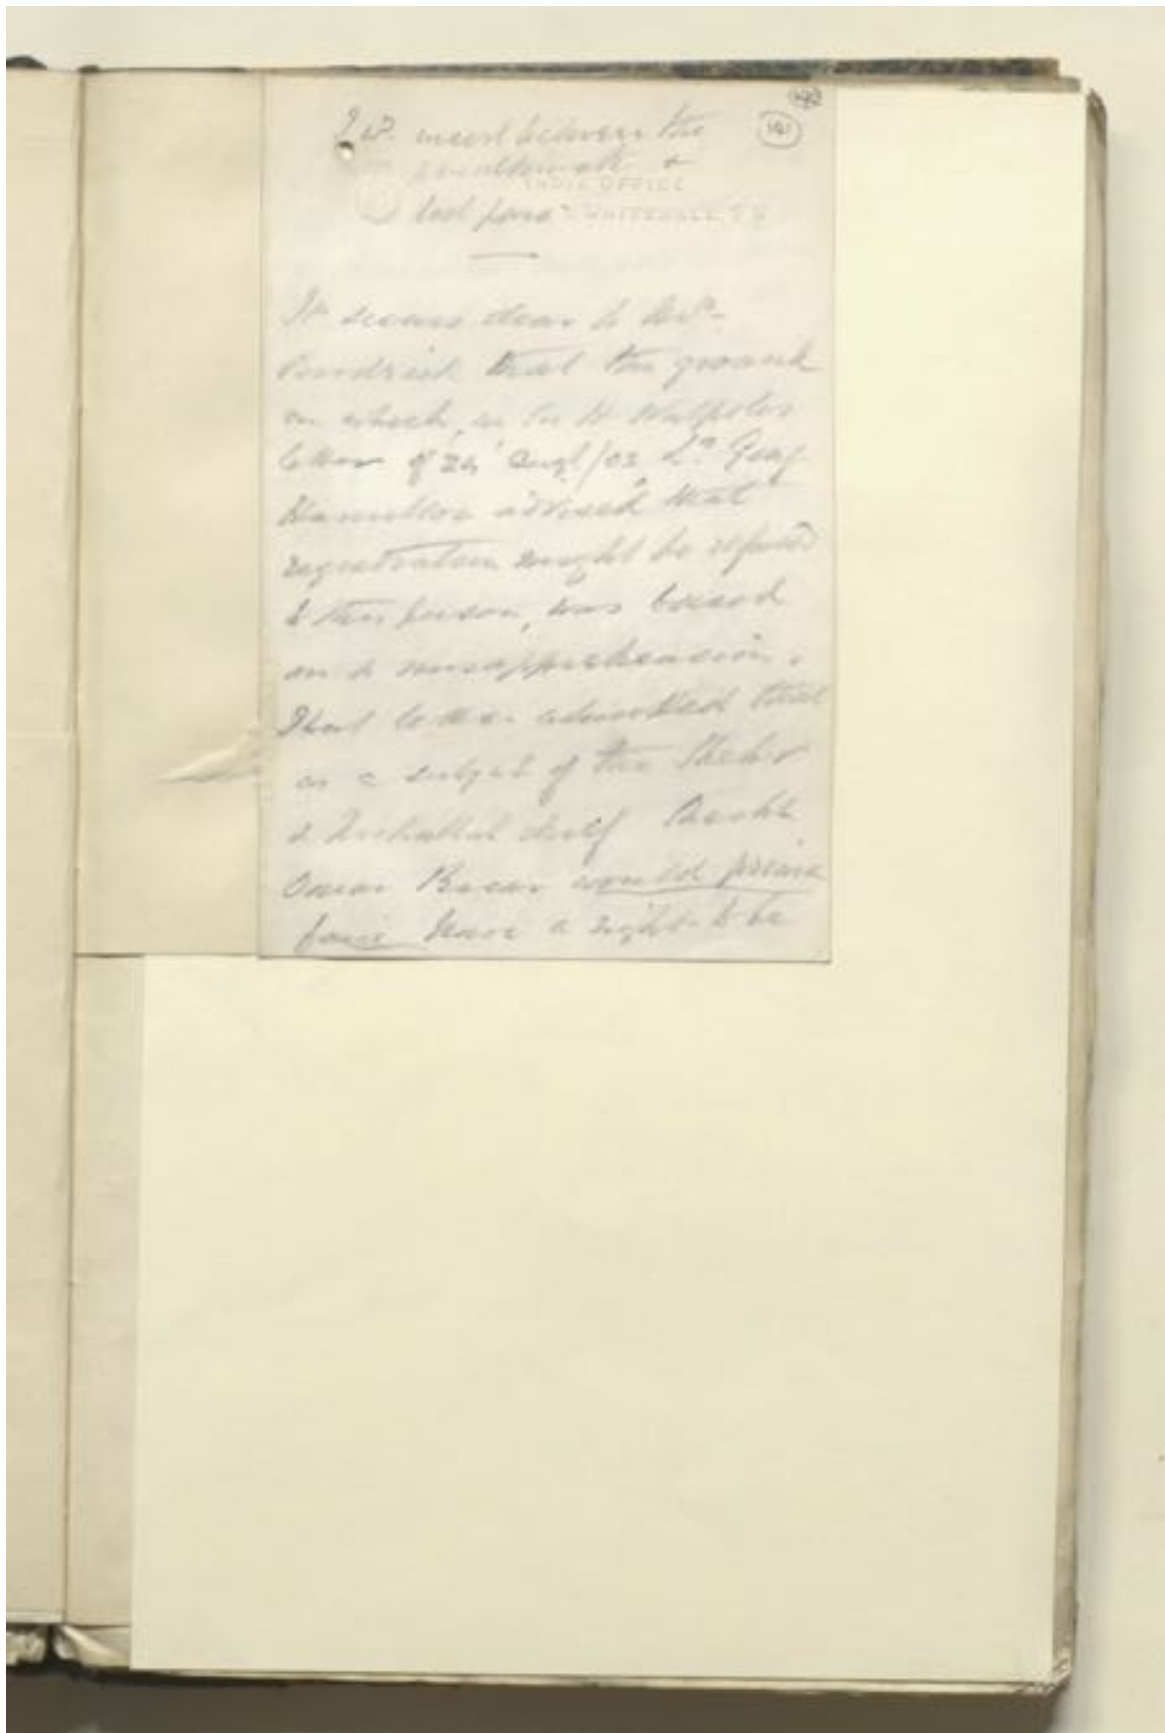 191
I wd. insert between the
penultimate &
last para
INDIA OFFICE
WHITEHALL S W
It seems clear to Mr.
Brodrick that the ground
on which, in Sir H Walpole's
letter of 24 Augt/03, Ld. George
Hamilton advised that
registration might be refused
to this person, was based
on a misapprehension.
That letter admitted that
as a subject of the Sheikh
& Mukalla itself Sheikh
Omar would prima
facie have a right to be